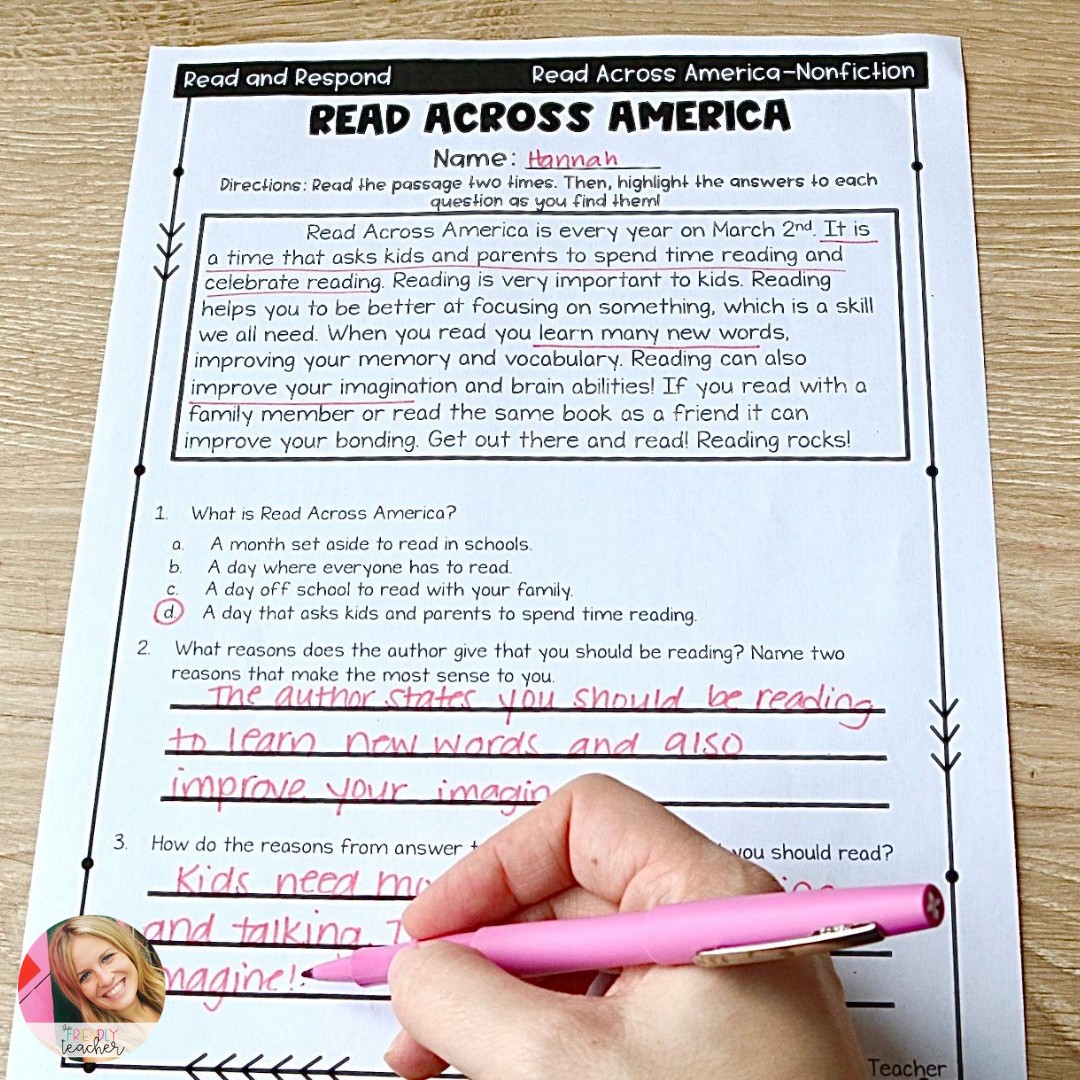 Read and Respond Read Across America-Nonfiction
READ ACROSS AMERICA
Name: Hannah
Directions: Read the passage two times. Then, highlight the answers to each
question as you find them!
Read Across America is every year on March 2nd. It is
a time that asks kids and parents to spend time reading and
celebrate reading. Reading is very important to kids. Reading
helps you to be better at focusing on something, which is a skill
we all need. When you read you learn many new words,
improving your memory and vocabulary. Reading can also
improve your imagination and brain abilities! If you read with a
family member or read the same book as a friend it can
improve your bonding. Get out there and read! Reading rocks!
1. What is Read Across America?
a. A month set aside to read in schools.
b. A day where everyone has to read.
c. A day off school to read with your family.
d. A day that asks kids and parents to spend time reading.
2. What reasons does the author give that you should be reading? Name two
reasons that make the most sense to you.
The author states you should be reading
to learn new words and also
improve your imagin
3. How do the reasons from answer you should read?
Kids need
and talking.
magine!
the
FRIENDLY
teacher
Teacher